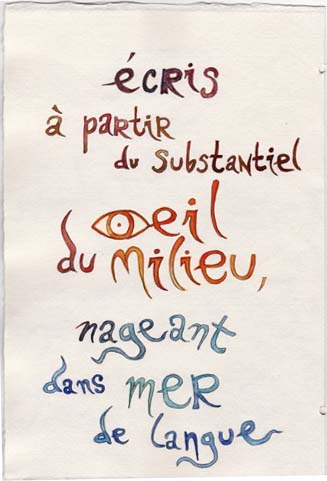 écris
à partir
du substantiel
oeil
du milieu,
nageant
dans mer
de langue